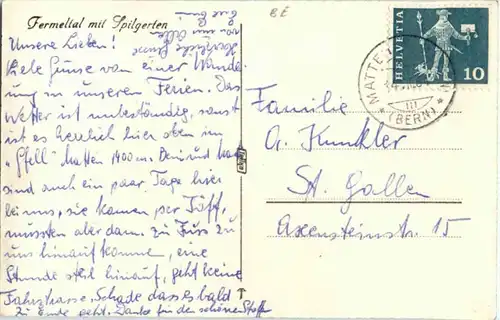 Fermeltal mit Spilgerten
BE
Unsere Lieben!
Viele Grüsse von einer Wande-
rung in unseren Ferien. Das
Wetter ist unbeständig, sonst
ist es herrlich hier oben im
"Gfell" Matten 1400 m. Beni und
sind auch ein paar Tage hier
bei uns, sie kamen per Töff,
mussten aber dann zu Fuss zu
uns hinauf kommen, eine
Stunde steil hinauf, geht keine
Fahrstrasse. Schade dass es bald
zu Ende geht. Danke für den schönen Stoff
Herzliche Grüsse
von uns allen
Eure
HELVETIA
10
MATTEN
(BERN)
Familie
A. Kunkler
St. Gallen
Axensteinstr. 15